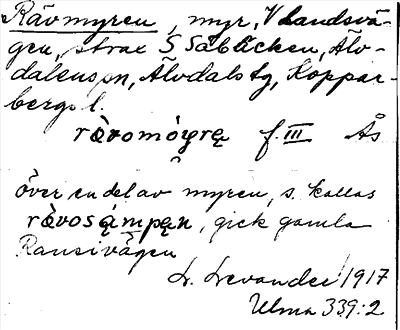 Rävmyren, myr, V landsvä-
gen, strax S Säbäcken, Älv-
dalens sn, Älvdals tg, Koppar-
bergs l.
ràvomóyrę f. III Ås
över en del av myren, s. kallas
ràvosąmpęn, gick gamla
Ransivägen
L. Levander 1917
Ulma 339:2